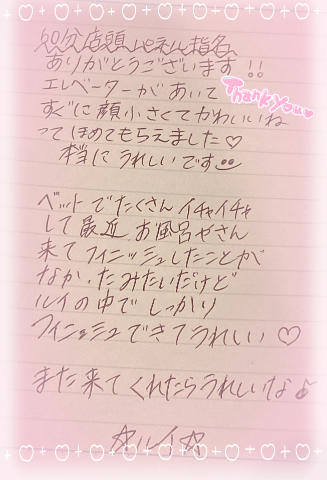 80分店頭パネル指名
ありがとうございます!!
エレベーターがあいて
Thank you
すぐに顔小さくてかわいいね
ってほめてもらえました♡
本当にうれしいです
ベットでたくさんイチャイチャ
して最近お風呂やさん
来てフィニッシュしたことが
なかったみたいだけど
ルイの中でしっかり
フィニッシュできてうれしい♡
また来てくれたらうれしいな♪
☆ルイ☆